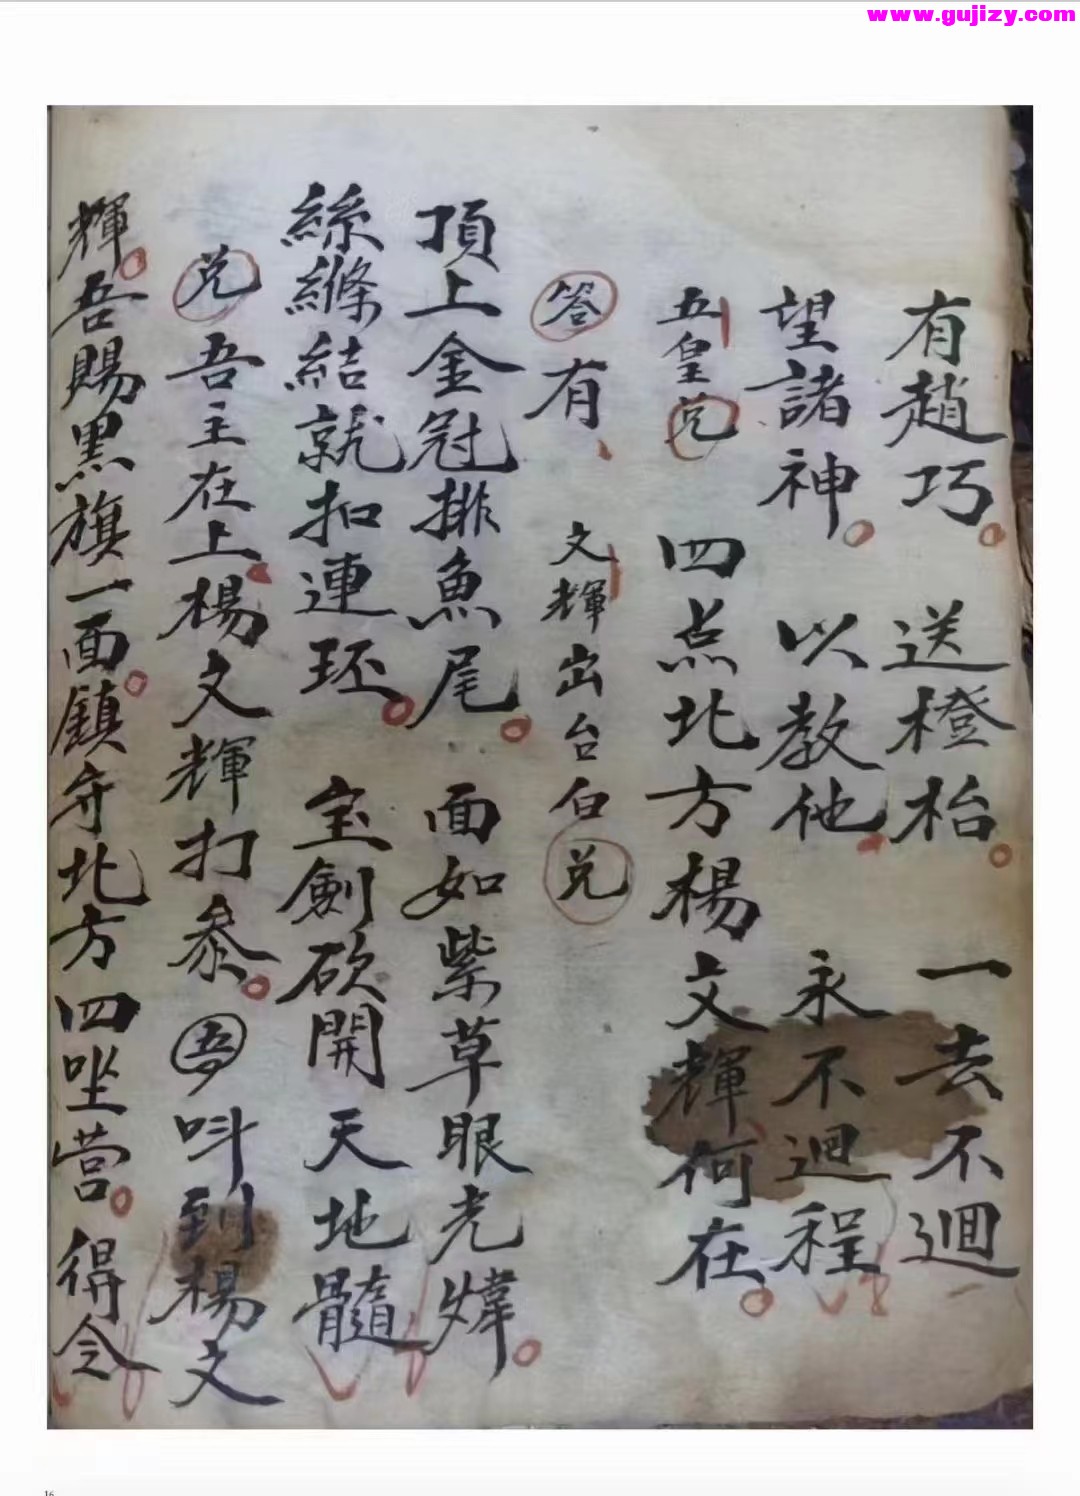 www.gujizy.com
有趙巧。送橙枱。一去不迴
望諸神。以教他。永不迴程
五皇兑 四点北方楊文輝何在。
答有、 文輝出台白兑
頂上金冠排魚尾。面如紫草眼光煒。
絲縧結就扣連环。宝劍砍開天地髓
兑吾主在上楊文輝打叅。吾呌到楊文
輝。吾賜黑旗一面。鎮守北方四坐营。得令
16